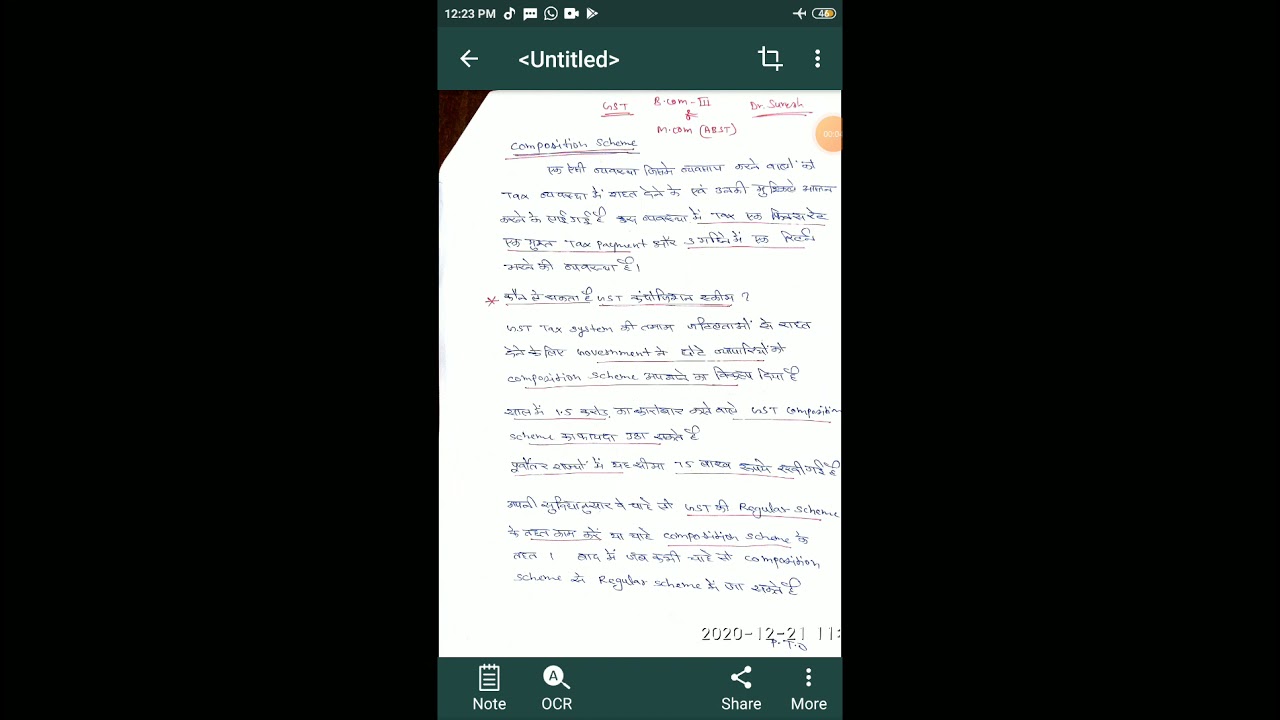 12:23 PM
46
<Untitled>
GST B.com-III Dr. Suresh
&
M.com (ABST)
00:04
Composition Scheme
एक ऐसी व्यवस्था जिसमे व्यवसाय करने वालो को
Tax व्यवस्था में राहत देने के एवं उनकी मुश्किले आसान
करने के लाई गई है इस व्यवस्था में Tax एक फिक्स रेट
एक मुश्त Tax payment और 3 महिने में एक रिटर्न
भरने की व्यवस्था है।
* कौन ले सकता है GST कंपोजिशन स्कीम ?
GST Tax system की तमाम जटिलताओं से राहत
देने के लिए Government ने छोटे व्यापारियों को
composition scheme अपनाने का विकल्प दिया है
साल में 1.5 करोड़ का कारोबार करने वाले GST composition
scheme का फायदा उठा सकते है
पूर्वोतर राज्यों में यह सीमा 75 लाख रूपये रखी गई है
अपनी सुविधानुसार वे चाहे तो GST की Regular scheme
के तहत काम करें या चाहे composition scheme के
तहत । बाद में जब कभी चाहे तो composition
scheme से Regular scheme में जा सकते है
2020-12-21 11:
P.T.O
Note OCR Share More